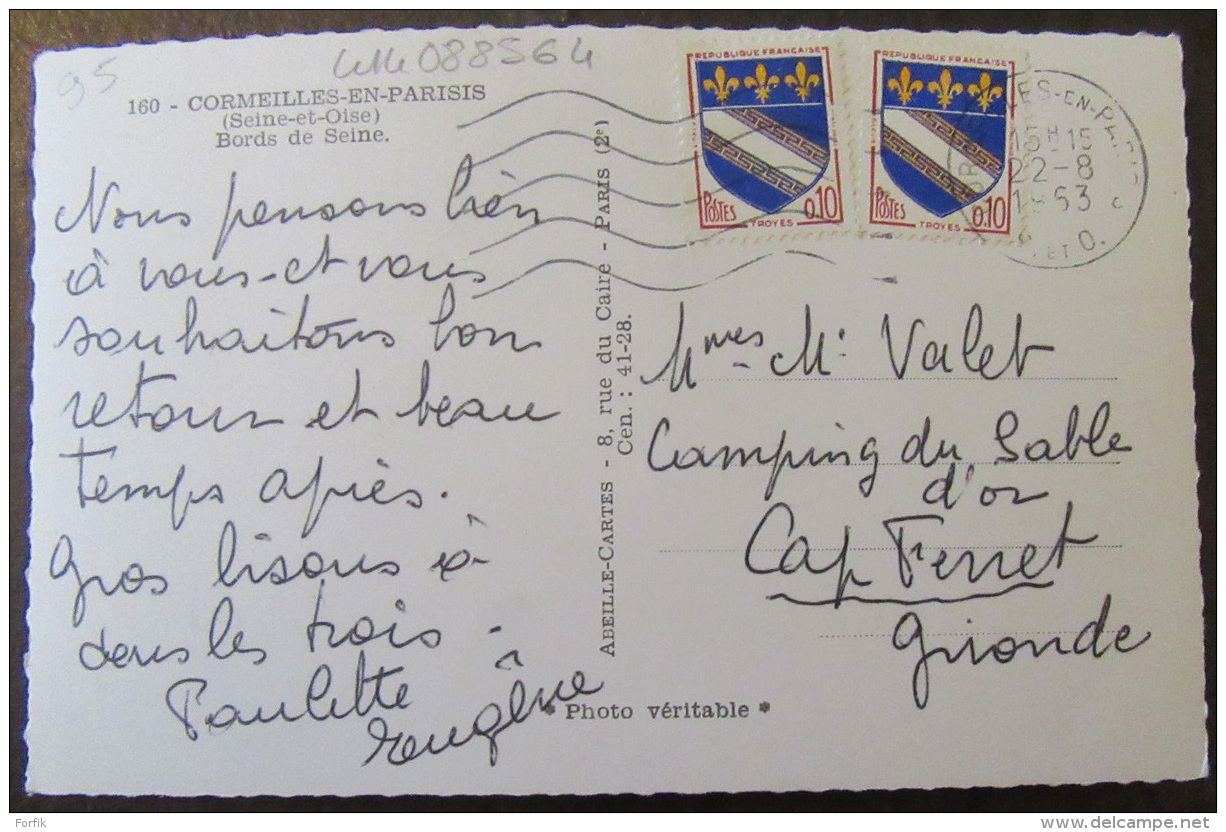 95
LMLC088564
160 - CORMEILLES-EN-PARISIS
(Seine-et-Oise)
Bords de Seine.
Nous pensons bien
à vous - et vous
souhaitons bon
retour et beau
temps après.
Gros bisous à
tous les trois -
Paulette
Eugène
ABEILLE-CARTES - 8, rue du Caire - PARIS (2e)
Cen. : 41-28.
* Photo véritable *
REPUBLIQUE FRANÇAISE
POSTES 0,10
TROYES
REPUBLIQUE FRANÇAISE
POSTES 0,10
TROYES
15H15
22-8
1963
ET O.
Mmes - Mr Valet
Camping du Sable
d'or
Cap Ferret
Gironde
Forfik
www.delcampe.net